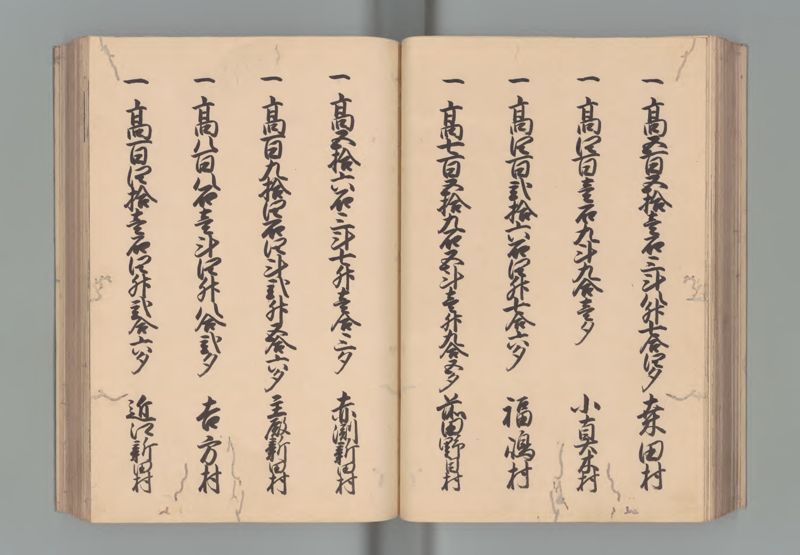 一 高五百五拾壱石三斗八升七合四夕 桒田村
一 高四百壱石九斗九合壱夕 小真木村
一 高四百弐拾六石四升七合六夕 福嶋村
一 高七百五拾九石五斗壱升九合五夕 前田野目村
一 高五拾六石三斗七升壱合三夕 赤渕新田村
一 高百九拾四石四斗弐升五合六夕 主殿新田村
一 高八百八石壱斗四升八合弐夕 吉方村
一 高百四拾壱石四升弐合六夕 近江新田村